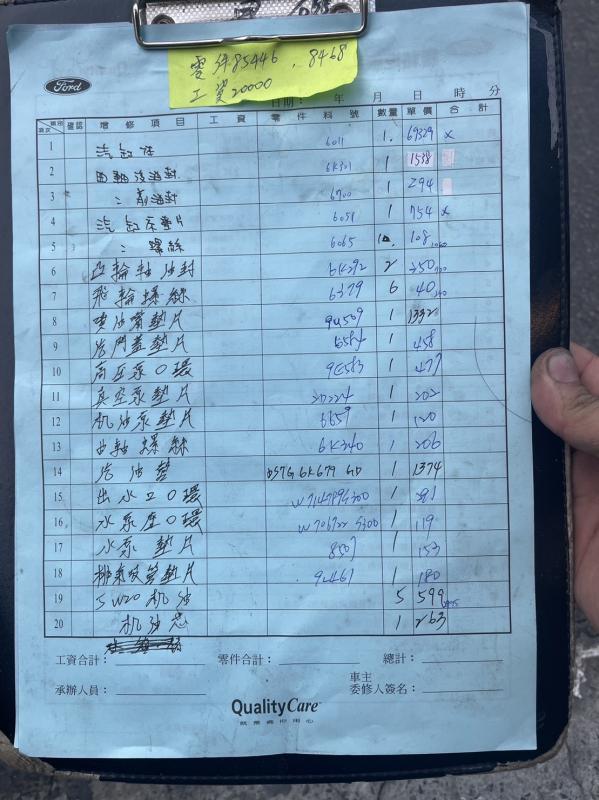 零件85446 . 8468
工資20000
Ford
日期： 年 月 日 時 分
類別 項次 確認 增修項目 工資 零件料號 數量 單價 合計
1 汽缸床 6011 1. 69329 x
2 曲軸後油封 6K301 1 1538
3 〃 前油封 6700 1 294
4 汽缸床墊片 6051 1 754 x
5 〃 螺絲 6065 10. 108
6 凸輪軸油封 6K292 2 350 700
7 飛輪螺絲 6379 6 40 240
8 噴油嘴墊片 9U509 1 1332
9 汽門蓋墊片 6584 1 458
10 高壓泵O環 9E583 1 477
11 真空泵墊片 2D224 1 202
12 机油泵墊片 6659 1 120
13 曲軸螺絲 6K340 1 206
14 汽油墊 DS7G 6K679 GD 1 1374
15 出水口O環 W714799S300 1
16 水泵座O環 W706722 S300 1 119
17 水泵墊片 8507 1 153
18 排氣岐管墊片 9U461 1 180
19 5W20机油 5 599
20 机油芯 1 263
工資合計： 零件合計： 總計：
承辦人員： 車主
委修人簽名：
QualityCare